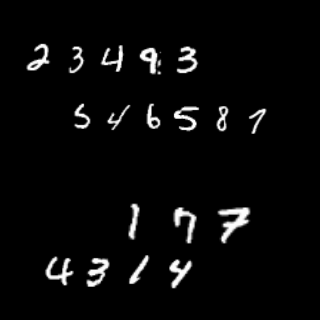 23493
546587
177
4314